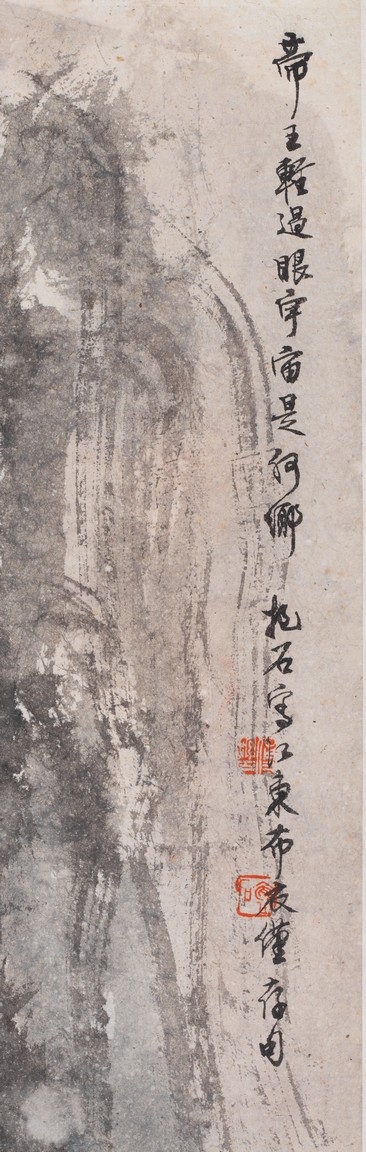 帝王輕過眼宇宙是何鄉 抱石寫江東布衣僅存句